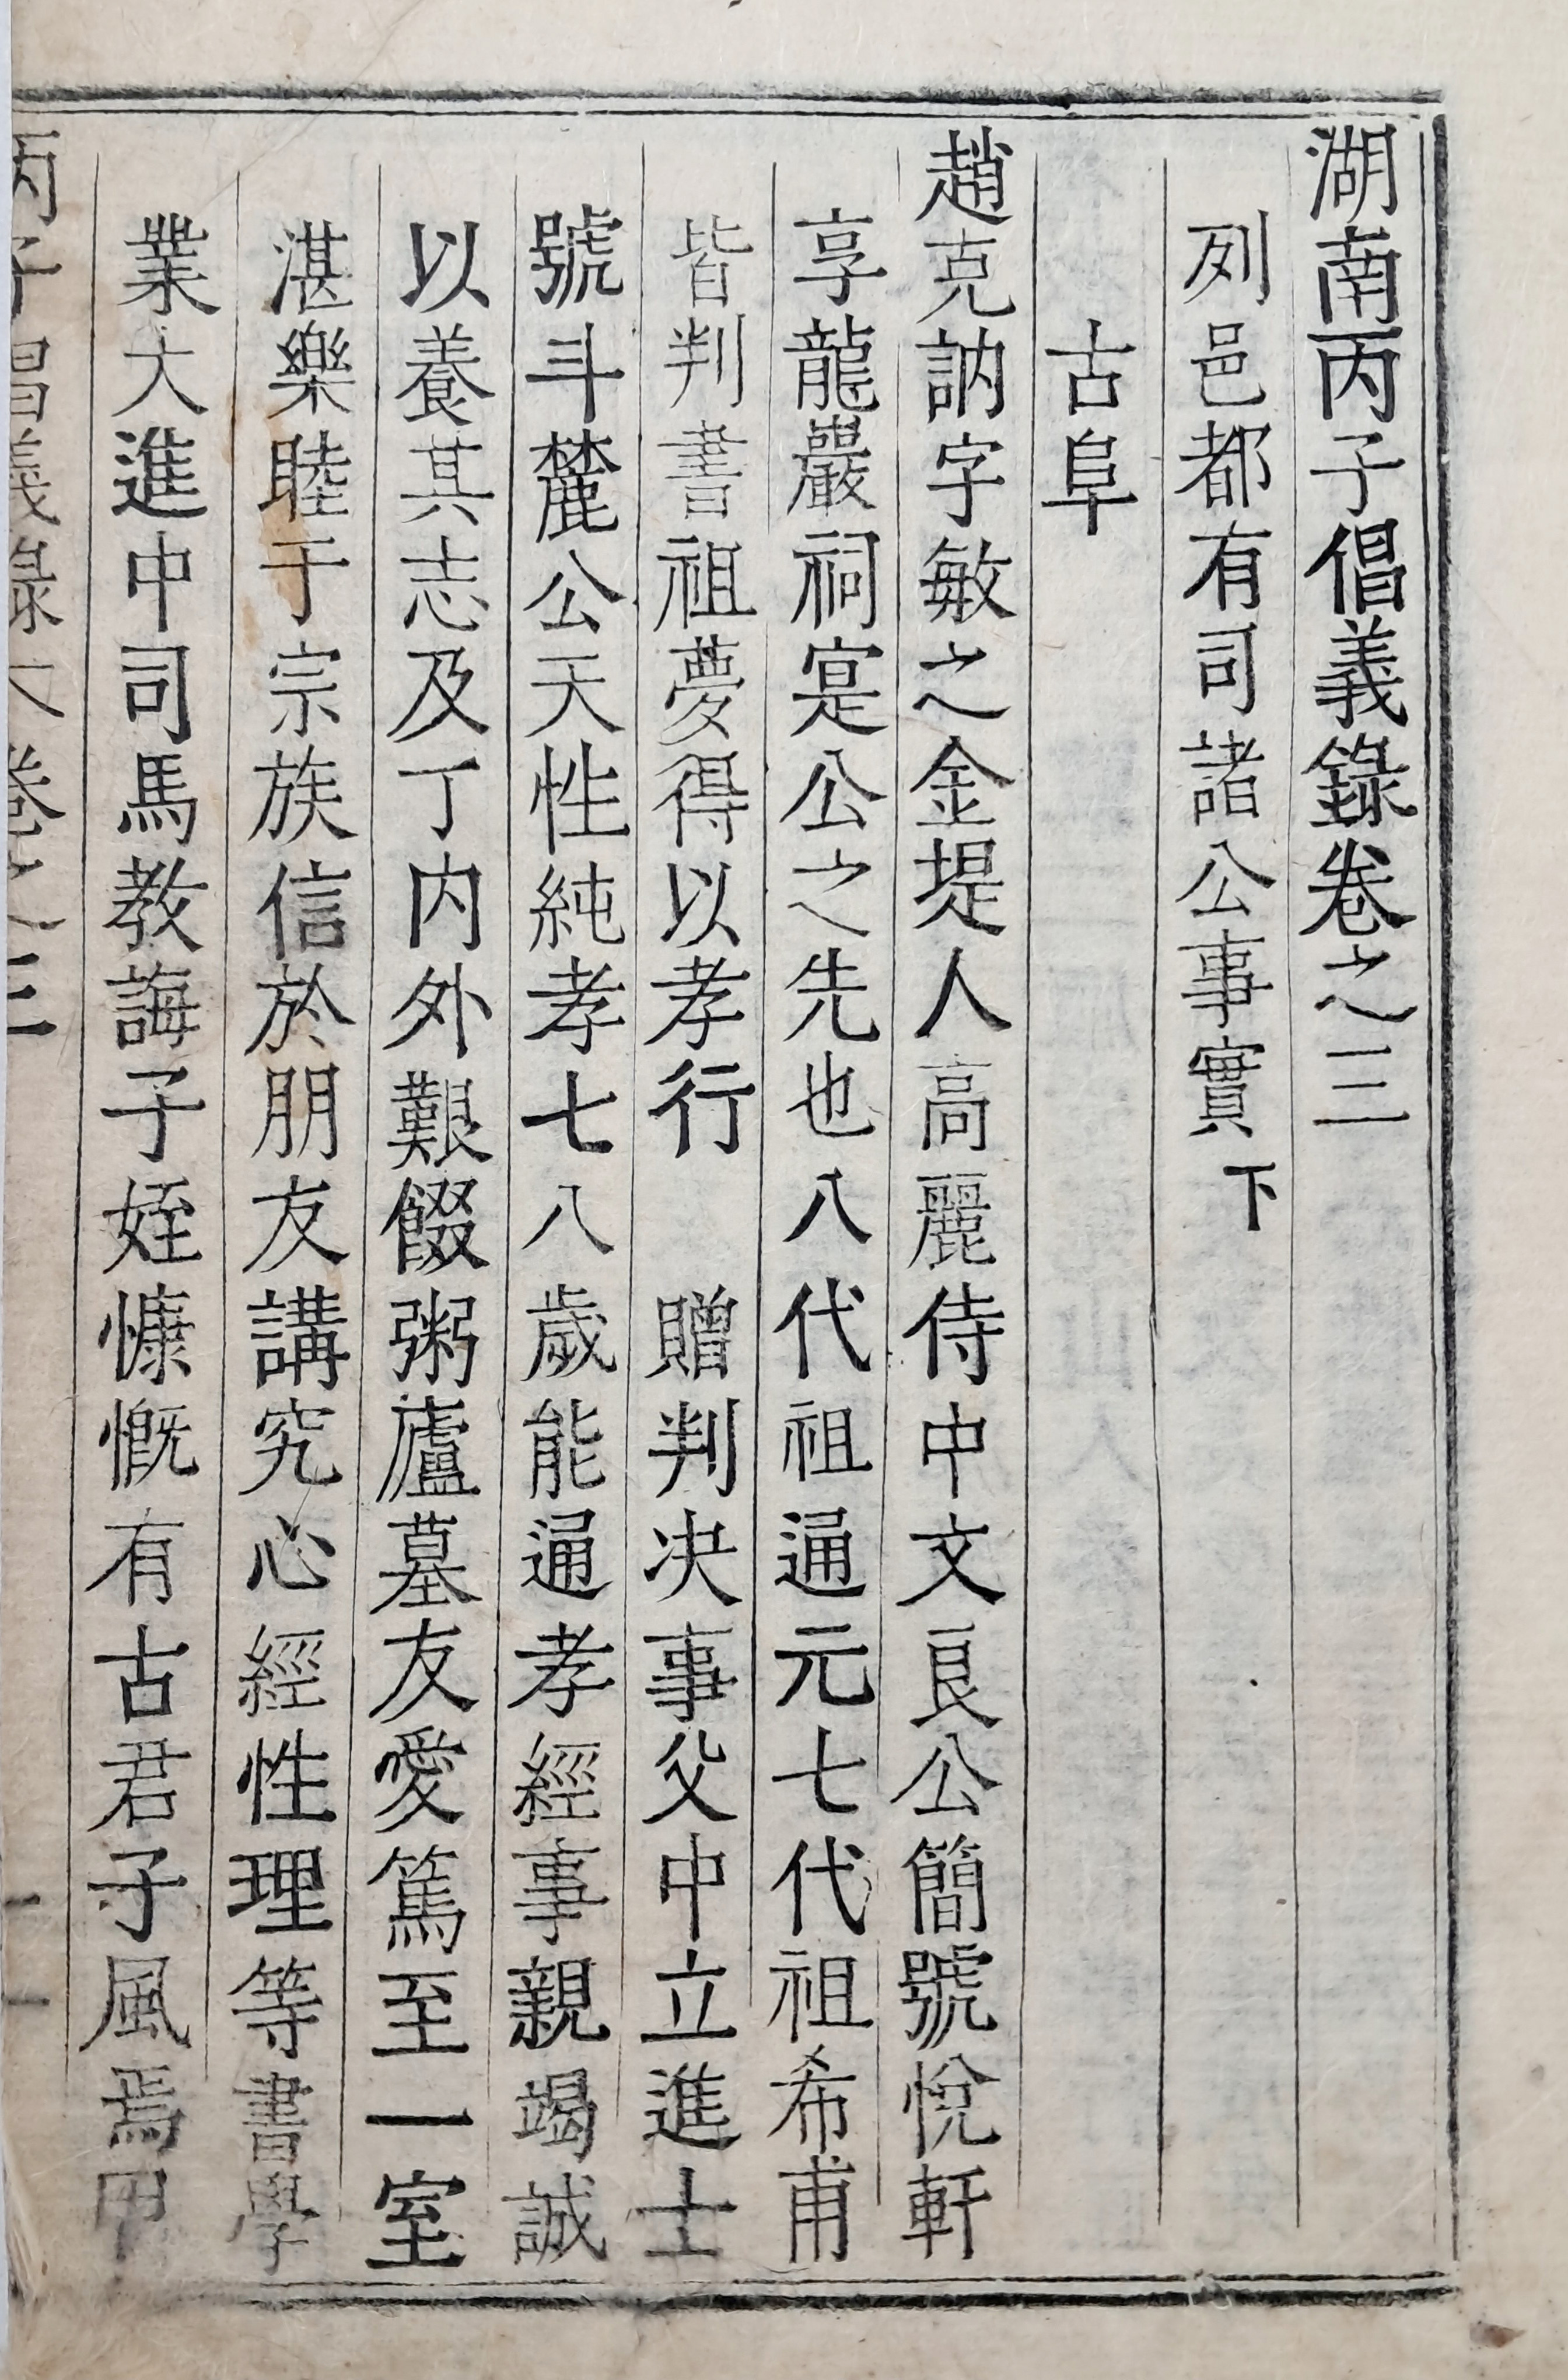 湖南丙子倡義錄卷之三
列邑都有司諸公事實下
古阜
趙克訥字敏之金堤人高麗侍中文良公簡號悅軒
享龍巖祠寔公之先也八代祖通元七代祖希甫
皆判書祖夢得以孝行 贈判决事父中立進士
號斗麓公天性純孝七八歲能通孝經事親竭誠
以養其志及丁内外艱餟粥廬墓友愛篤至一室
湛樂睦于宗族信於朋友講究心經性理等書學
業大進中司馬教誨子姪慷慨有古君子風焉甲
丙子倡義錄 卷之三